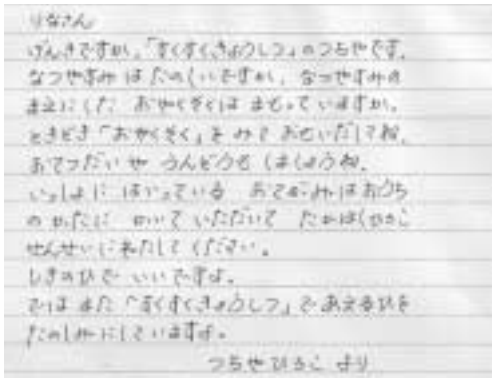 りなさん
げんきですか。「すくすくきょうしつ」のつちやです。
なつやすみ は たのしいですか。なつやすみの
まえにした おやくそくは まもっていますか。
ときどき「おやくそく」を みて おもいだしてね。
おてつだい や うんどうも しましょうね。
いっしょに はいっている おてがみは おうち
の かたに かいて いただいて たかはしゆきこ
せんせいに わたして ください。
しきのひで いいですよ。
では また 「すくすくきょうしつ」で あえるひを
たのしみにしていますよ。
つちやひろこ より